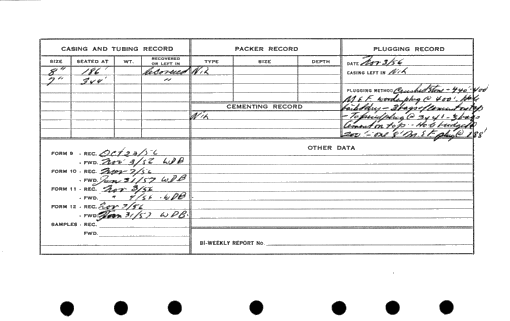 CASING AND TUBING RECORD PACKER RECORD PLUGGING RECORD
SIZE SEATED AT WT. RECOVERED OR LEFT IN TYPE SIZE DEPTH
DATE Nov 3/56
8" 186' Recovered Nil
CASING LEFT IN Nil
7" 344' "
PLUGGING METHOD Crushed Stone - 440'-400'
M & F wooden plug @ 400'.
CEMENTING RECORD
- 3 bags of cement on top
Nil
plug @ 344' - 3 bags
cement on top
200' - one 8" M & F plug @ 185'
OTHER DATA
FORM 9 - REC. Oct 23/56
- FWD. Nov 3/56 WDB
FORM 10 - REC. Nov 7/56
- FWD. Jan 31/57 WDB
FORM 11 - REC. Nov 3/56
- FWD. " 9/56 WDB
FORM 12 - REC. Nov 7/56
- FWD. Jan 31/57 WDB
SAMPLES - REC.
FWD.
BI-WEEKLY REPORT No.